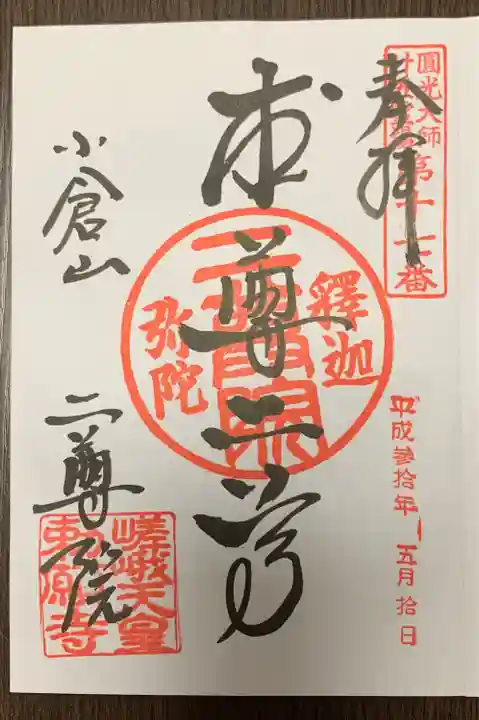 奉拝
圓光大師
第十七番
本尊二尊
釋迦
二尊院
弥陀
平成參拾年
五月拾日
小倉山
二尊院
嵯峨天皇
勅願寺